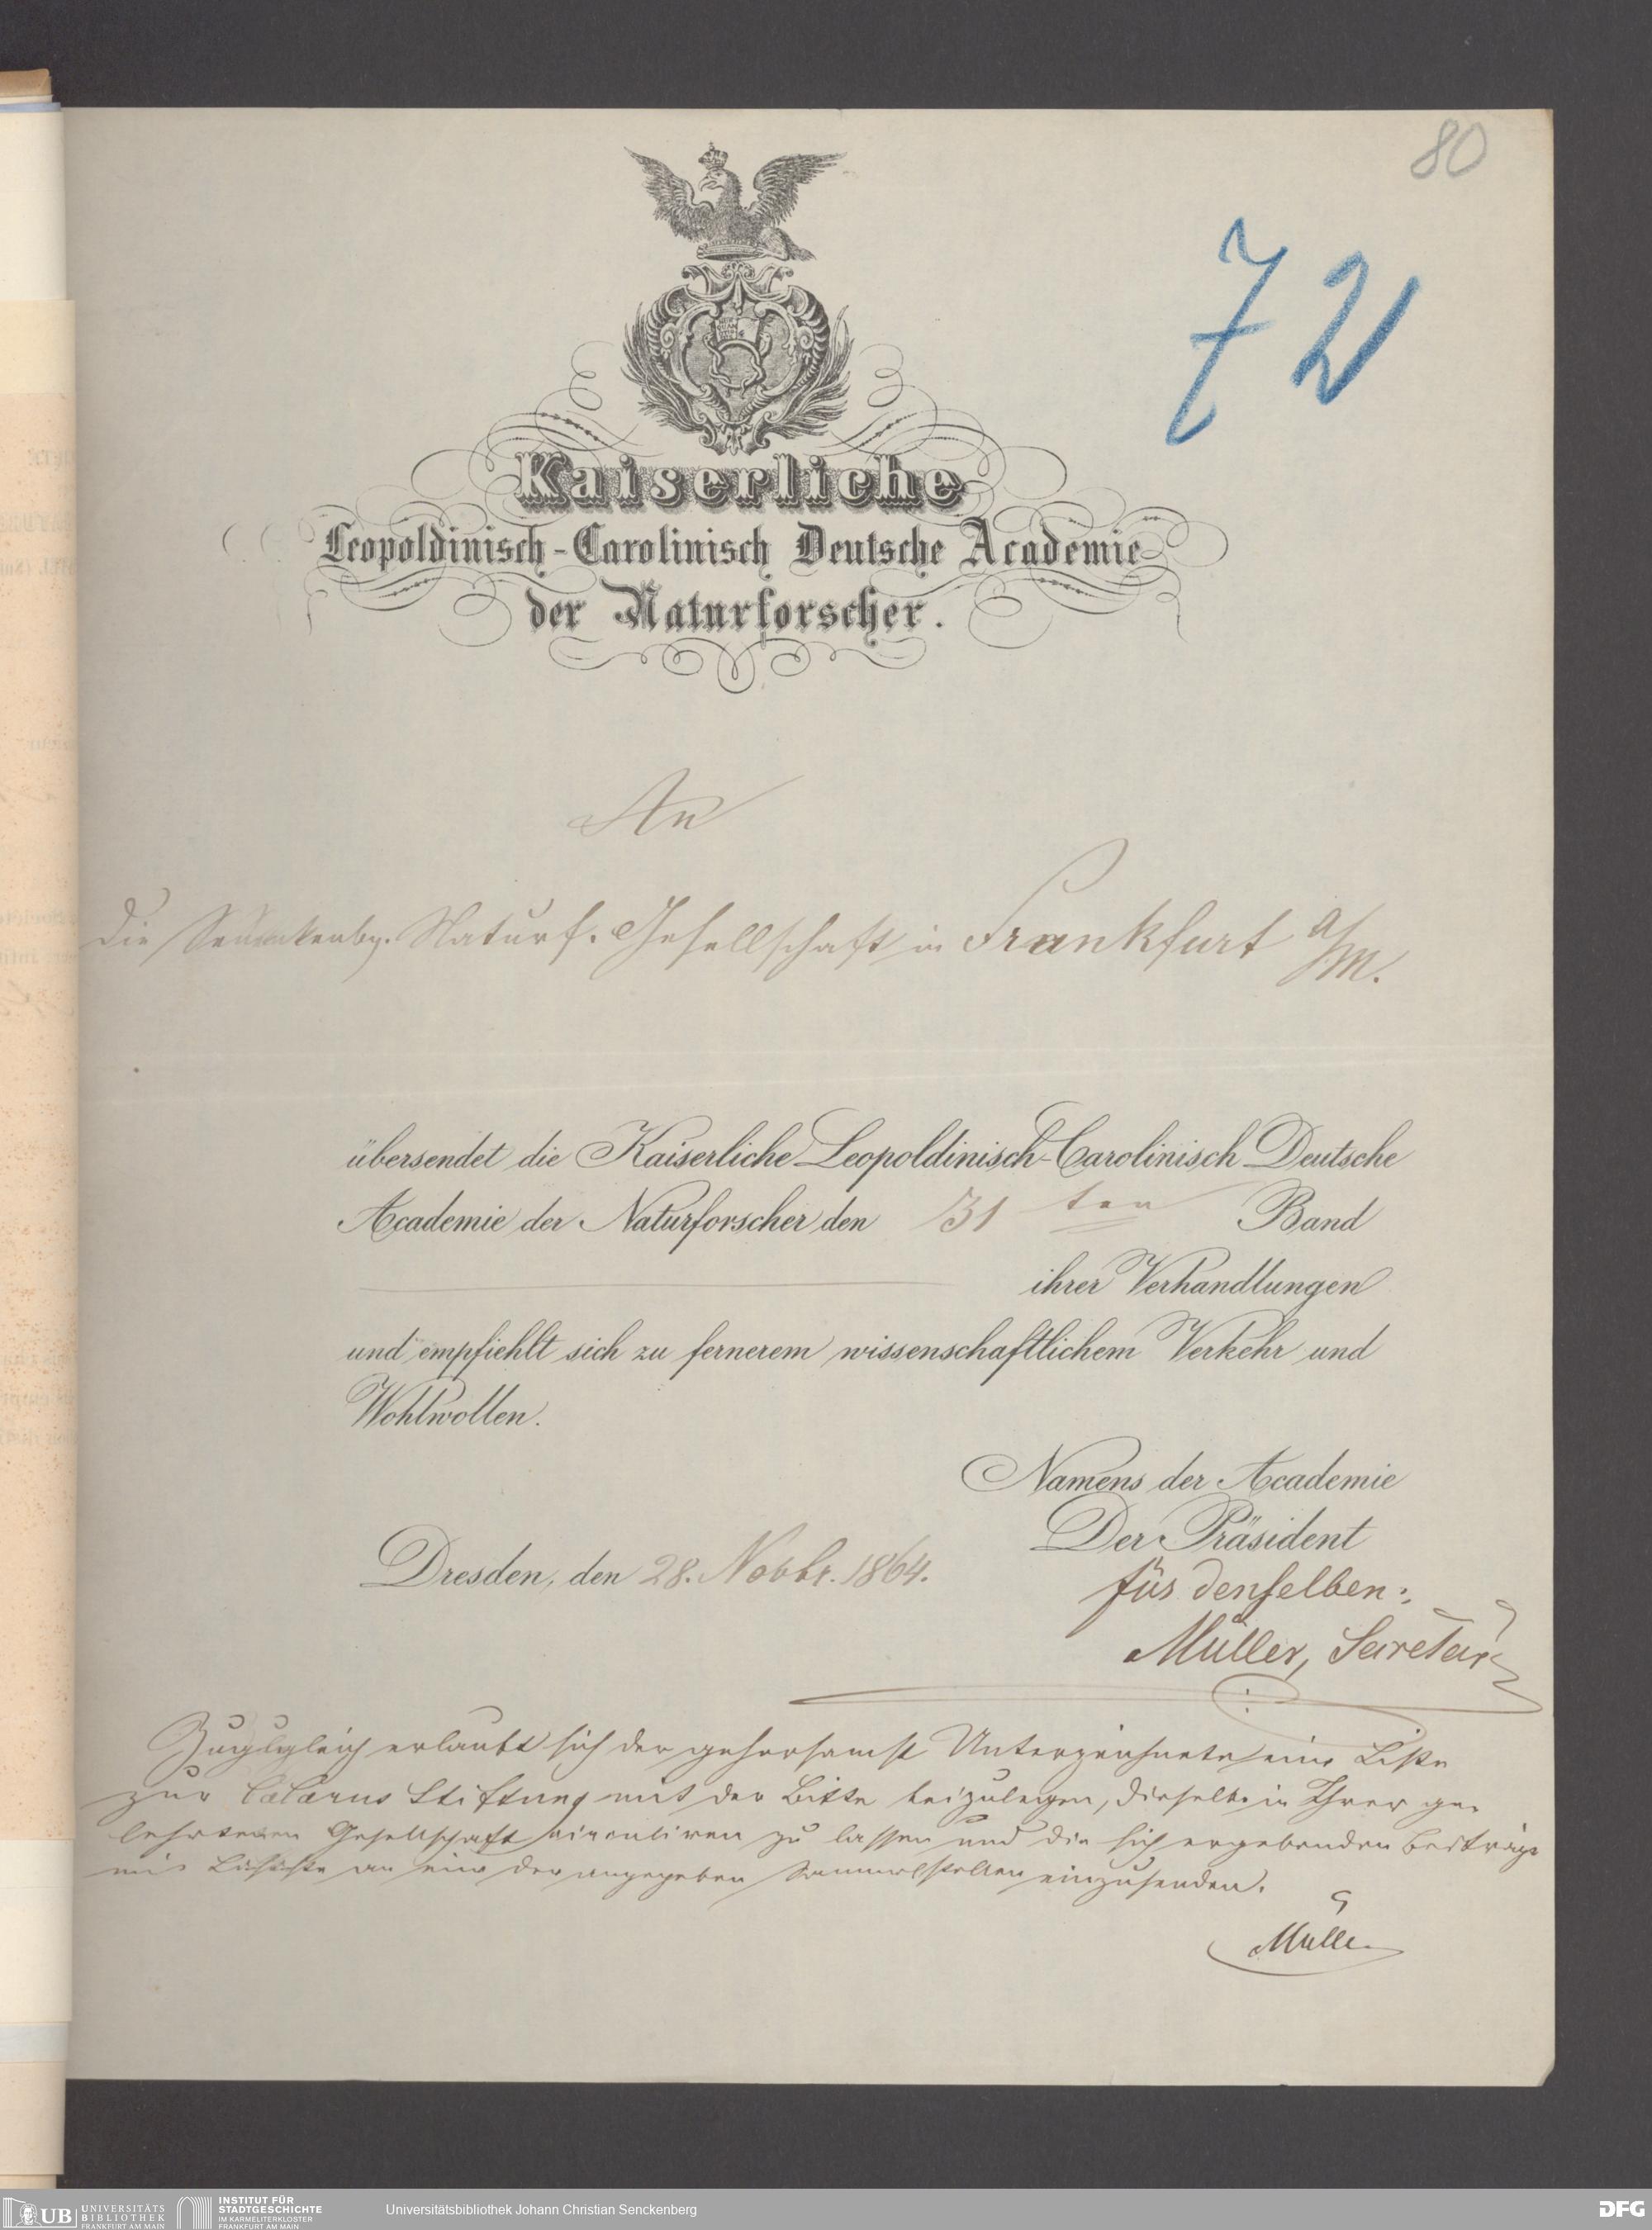 80
72
Kaiserliche
Leopoldinisch-Carolinisch Deutsche Academie
der Naturforscher.
An
die Senckenbg. Naturf. Gesellschaft in Frankfurt a/M.
übersendet die Kaiserliche Leopoldinisch-Carolinisch Deutsche
Academie der Naturforscher den 31 ten Band
ihrer Verhandlungen
und empfiehlt sich zu fernerem wissenschaftlichem Verkehr und
Wohlwollen.
Namens der Academie
Der Präsident
Dresden, den 28. Novbr. 1864.
für denselben:
Müller, Secretär
Zugleich erlaubt sich der gehorsamst Unterzeichnete eine Liste
zur Carus Stiftung mit der Bitte beizulegen, dieselbe in Ihrer ge-
lehrten Gesellschaft circuliren zu lassen und die sich ergebenden Beiträge
an eine der angegeben Sammelstellen einzusenden.
Müller
UB UNIVERSITÄTS
BIBLIOTHEK
FRANKFURT AM MAIN
INSTITUT FÜR
STADTGESCHICHTE
IM KARMELITERKLOSTER
FRANKFURT AM MAIN
Universitätsbibliothek Johann Christian Senckenberg
DFG